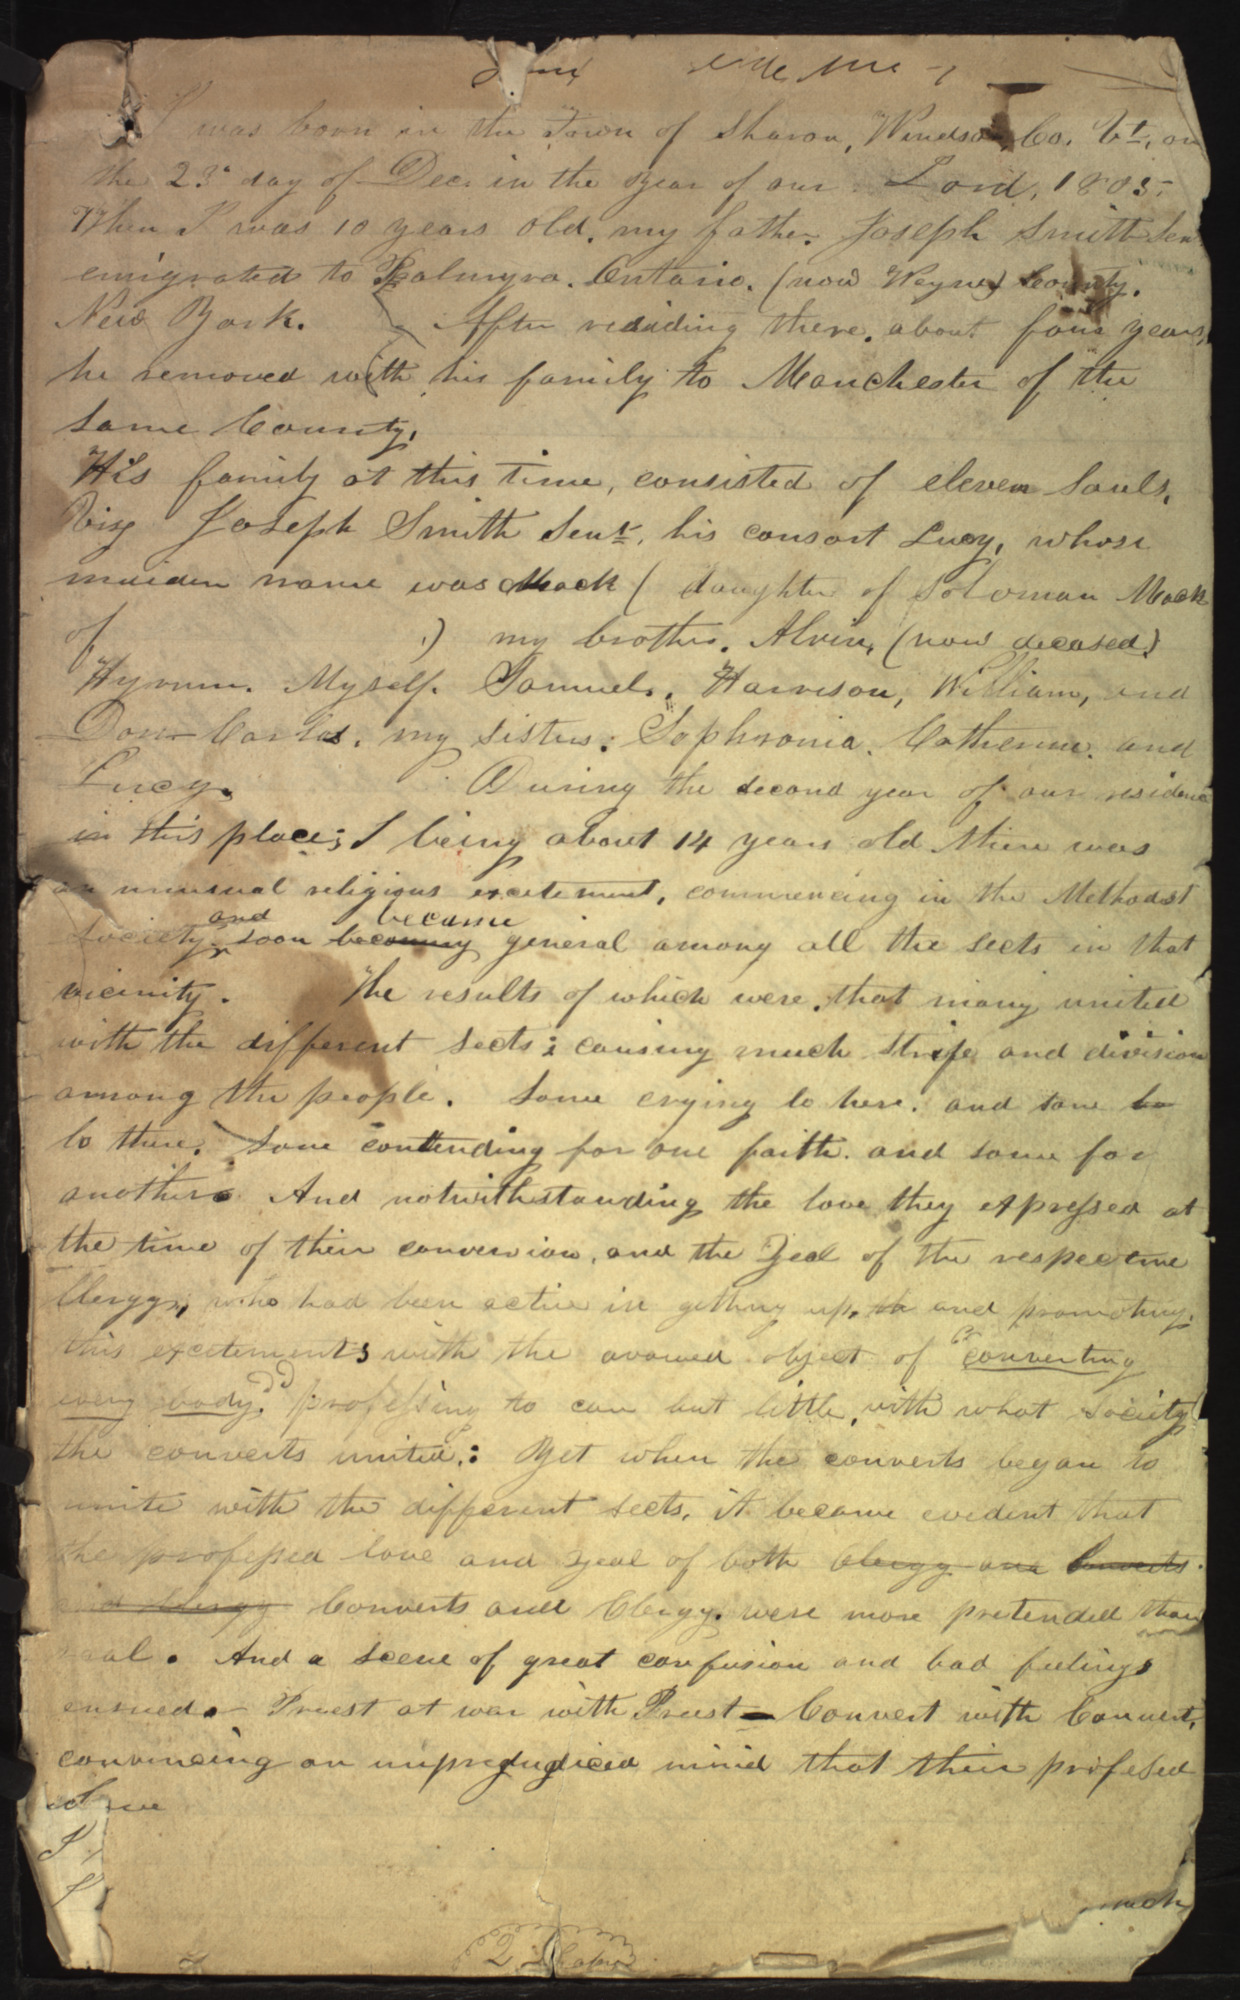 I was born in the Town of Sharon, Windsor Co. Vt, on
the 23d day of Dec. in the year of our Lord, 1805.
When I was 10 years old, my father Joseph Smith Sen
emigrated to Palmyra, Ontario, (now Wayne) County,
New York. After residing there, about four years,
he removed with his family to Manchester of the
same County,
His family at this time, consisted of eleven souls,
Viz Joseph Smith Senr, his consort Lucy, whose
maiden name was Mack ( daughter of Solomon Mack
of .) my brother, Alvin, (now deceased)
Hyrum, Myself, Samuel, Harrison, William, and
Don Carlos, my sisters; Sophronia, Catherine, and
Lucy. During the second year of our residence
in this place; I being about 14 years old there was
an unusual religious excitement, commencing in the Methodist
and became
Society, soon becoming general among all the sects in that
vicinity. The results of which were, that many united
with the different sects; causing much strife and division
among the people. Some crying lo here, and some lo
lo there. Some contending for one faith and some for
another. And notwithstanding the love they expressed at
the time of their conversion, and the Zeal of the respective
Clergy, who had been active in getting up, th and promoting
this excitements with the avowed object of "converting
every body," professing to care but little, with what society
the converts united,: Yet when the converts began to
unite with the different sects, it became evident that
the professed love and zeal of both Clergy and Converts
and Clergy Converts and Clergy, were more pretended than
real. And a scene of great confusion and bad feelings
ensued. Preist at war with Preist - Convert with Convert,
convincing an unprejudiced mind that their professed